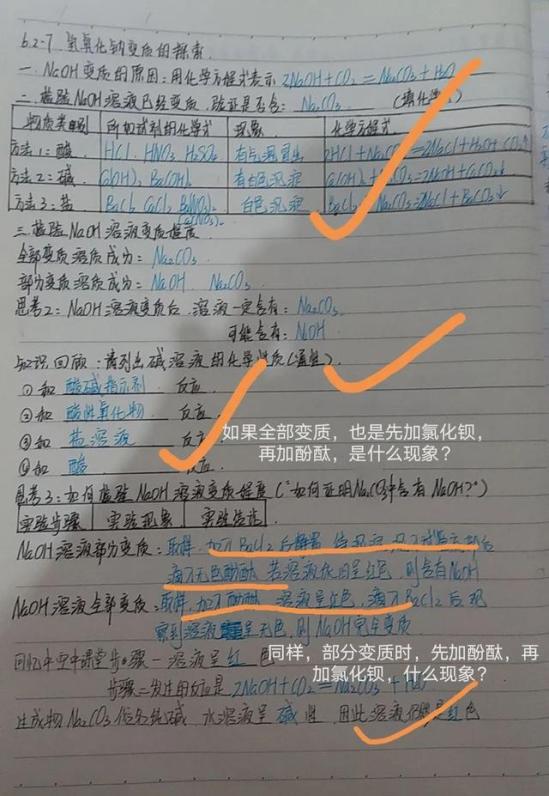 6.2-7 氢氧化钠变质的探索
一. NaOH变质的原因:用化学方程式表示 2NaOH+CO₂=Na₂CO₃+H₂O
二.检验NaOH溶液已经变质,验证是否含: Na₂CO₃ (填化学
物质类别 所加试剂的化学式 现象 化学方程式
方法1:酸 HCl HNO₃ H₂SO₄ 有气泡冒出 2HCl+Na₂CO₃=2NaCl+H₂O+CO₂↑
方法2:碱 Ca(OH)₂ Ba(OH)₂ 有白色沉淀 Ca(OH)₂+Na₂CO₃=2NaOH+CaCO₃↓
方法3:盐 BaCl₂ CaCl₂ Ba(NO₃)₂ Ca(NO₃)₂ 白色沉淀 BaCl₂+Na₂CO₃=2NaCl+BaCO₃↓
三.检验NaOH溶液变质程度
全部变质溶质成为: Na₂CO₃
部分变质溶质成为: NaOH Na₂CO₃
思考2: NaOH溶液变质后,溶液一定含有: Na₂CO₃
可能含有: NaOH
知识回顾:请列出碱溶液的化学性质(通性)
①和 酸碱指示剂 反应
②和 酸性氧化物 反应
③和 盐溶液 反应
如果全部变质,也是先加氯化钡,
再加酚酞,是什么现象?
④和 酸 反应
思考3:如何检验NaOH溶液变质程度("如何证明Na₂CO₃中含有NaOH?")
实验步骤 实验现象 实验结论
NaOH溶液部分变质:取样,加入BaCl₂后静置
滴入无色酚酞 若溶液依旧呈红色,则含有NaOH
NaOH溶液全部变质:取样,加入酚酞 溶液呈红色,滴入BaCl₂后观
察到溶液呈无色,则NaOH完全变质
同样,部分变质时,先加酚酞,再
加氯化钡,什么现象?
步骤一溶液呈 红 色
步骤二发生的反应是 2NaOH+CO₂=Na₂CO₃+H₂O
生成物Na₂CO₃俗名纯碱 水溶液呈 碱 性 因此溶液仍然是红色